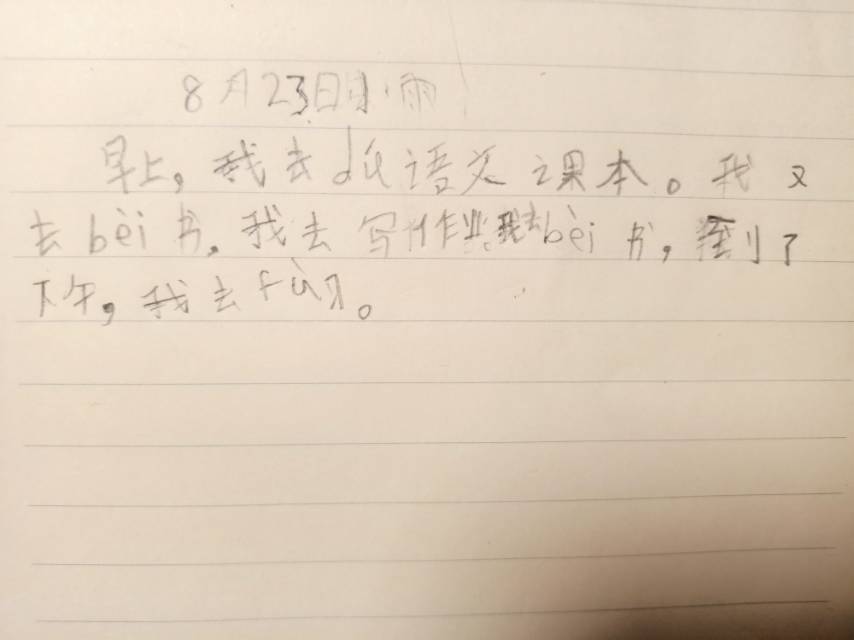 8月23日小雨
早上，我去dú语文课本。我又
去bèi书，我去写作业，我去bèi书，到了
下午，我去fùxí。